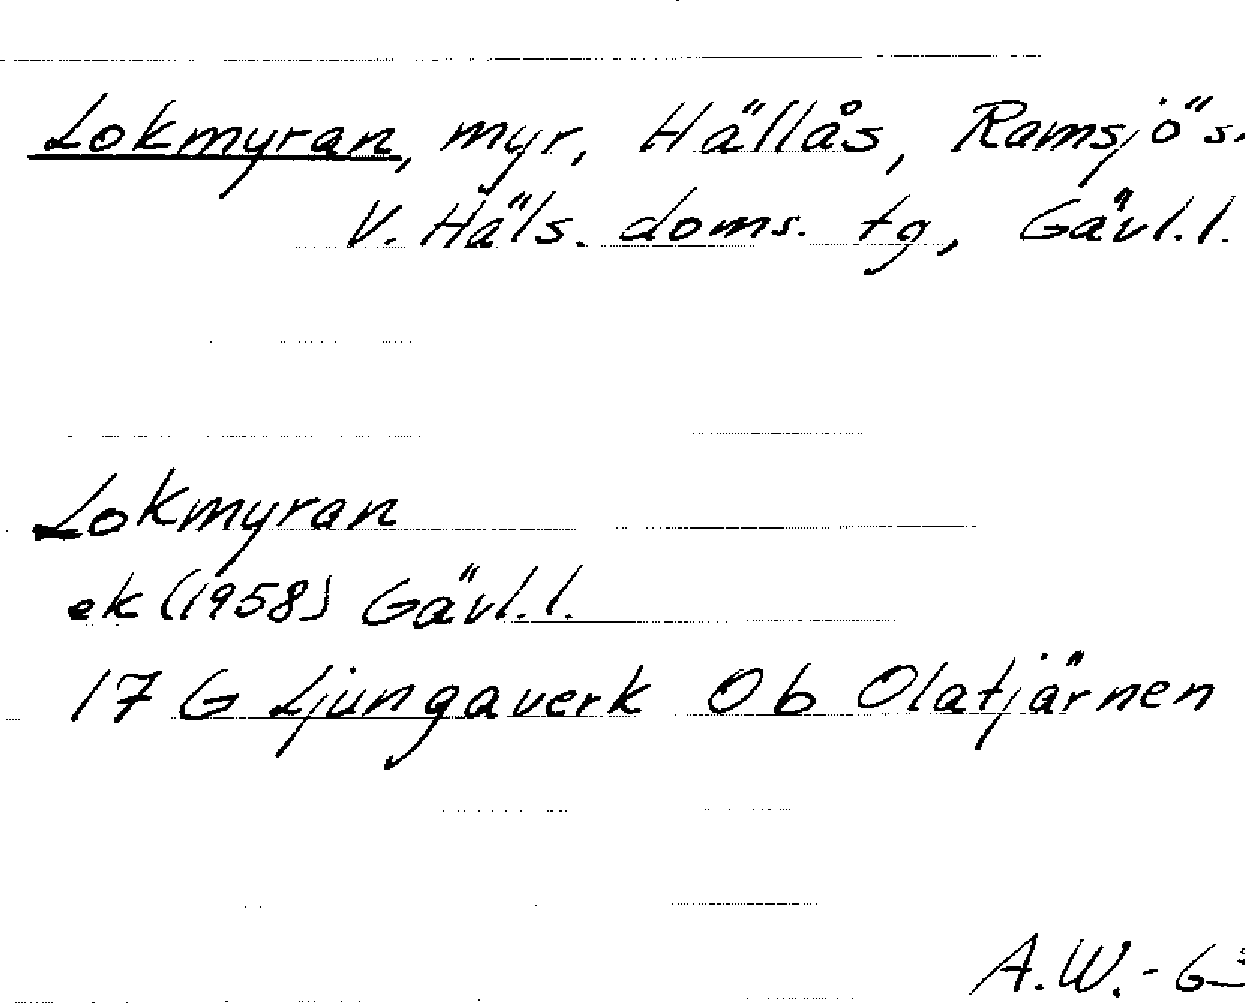 Lokmyran, myr, Hällås, Ramsjö s.
V. Häls. doms. tg, Gävl.l.
Lokmyran
ek (1958) Gävl.l.
17 G Ljungaverk Ob Olatjärnen
A.W.-63